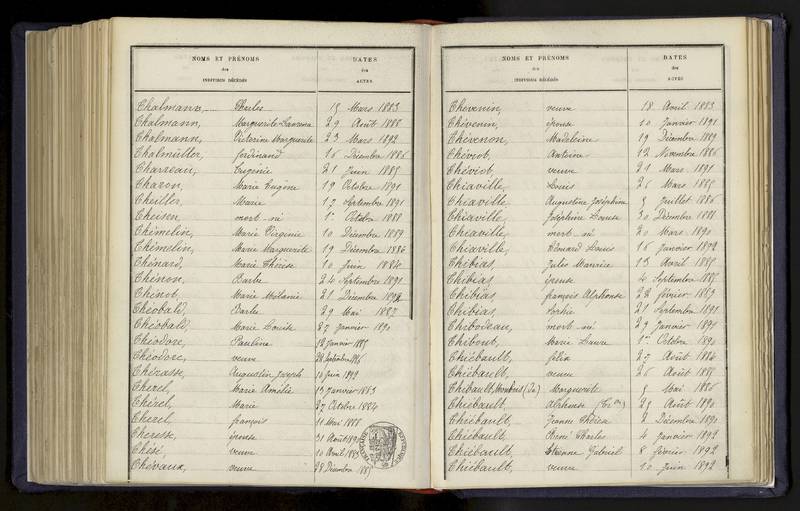 NOMS ET PRÉNOMS DATES
des des
INDIVIDUS DÉCÉDÉS ACTES
Thalmann, Charles 15 Mars 1883
Thalmann, Marguerite Laurence 29 Août 1888
Thalmann, Victorine Marguerite 23 Mars 1892
Thalmüller, Ferdinand 16 Décembre 1886
Tharreau, Eugénie 21 Juin 1885
Tharon, Marie Eugène 19 Octobre 1891
Theiller, Marie 17 Septembre 1891
Theisen, mort-né 1er Octobre 1888
Thémelin, Marie Virginie 10 Décembre 1889
Thémelin, Marie Marguerite 19 Décembre 1886
Thénard, Marie Thérèse 10 Juin 1884
Thénon, Barbe 24 Septembre 1891
Thenot, Marie Mélanie 21 Décembre 1892
Théobald, Barbe 29 Mai 1887
Théobald, Marie Louise 27 Janvier 1890
Théodore, Pauline 12 Janvier 1885
Théodore, veuve 28 Septembre 1886
Thérasse, Augustin Joseph 16 Juin 1892
Thérel, Marie Amélie 13 Janvier 1883
Thérel, Marie 27 Octobre 1884
Thérel, François 11 Mai 1888
Theresse, épouse 31 Août 1890
Thésé, veuve 10 Avril 1883
Thévaux, veuve 28 Décembre 1885
NOMS ET PRÉNOMS DATES
des des
INDIVIDUS DÉCÉDÉS ACTES
Thévenin, veuve 18 Avril 1883
Thévenin, épouse 10 Janvier 1891
Thévenon, Madeleine 19 Décembre 1889
Théviot, Antoine 12 Novembre 1886
Théviot, veuve 21 Mars 1891
Thiaville, Louis 26 Mars 1885
Thiaville, Augustine Joséphine 5 Juillet 1886
Thiaville, Joséphine Louise 30 Décembre 1888
Thiaville, mort-né 20 Mars 1890
Thiaville, Edouard Louis 16 Janvier 1892
Thibias, Jules Maurice 13 Avril 1885
Thibias, épouse 4 Septembre 1885
Thibias, François Alphonse 22 Février 1889
Thibias, Sophie 21 Septembre 1891
Thibodeau, mort-né 29 Janvier 1891
Thibout, Marie Laure 1er Octobre 1890
Thiébault, Félix 27 Août 1884
Thiébault, veuve 26 Août 1885
Thibault, (de) Marguerite 5 Mai 1886
Thiébault, Alphonse 25 Août 1890
Thiébault, Jeanne Thérèse 2 Décembre 1890
Thiébault, René Charles 4 Janvier 1892
Thiébault, Etienne Gabriel 8 Février 1892
Thiébault, veuve 10 Juin 1892